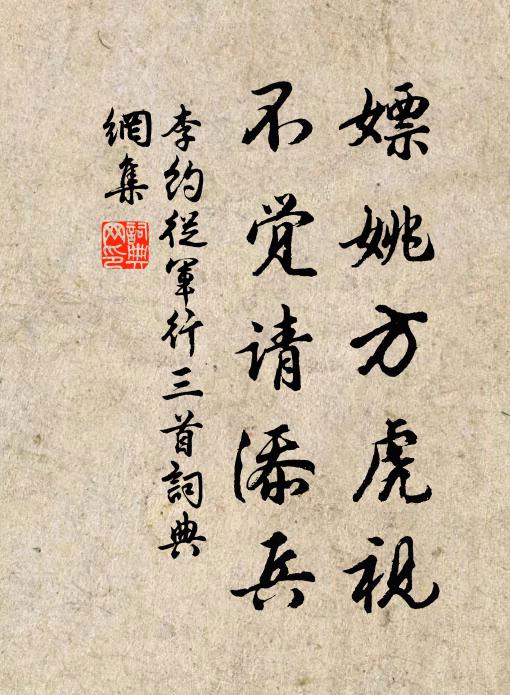 嫖姚方虎视
不觉请添兵
李约從軍行三首詞典
網集
詞典
网印